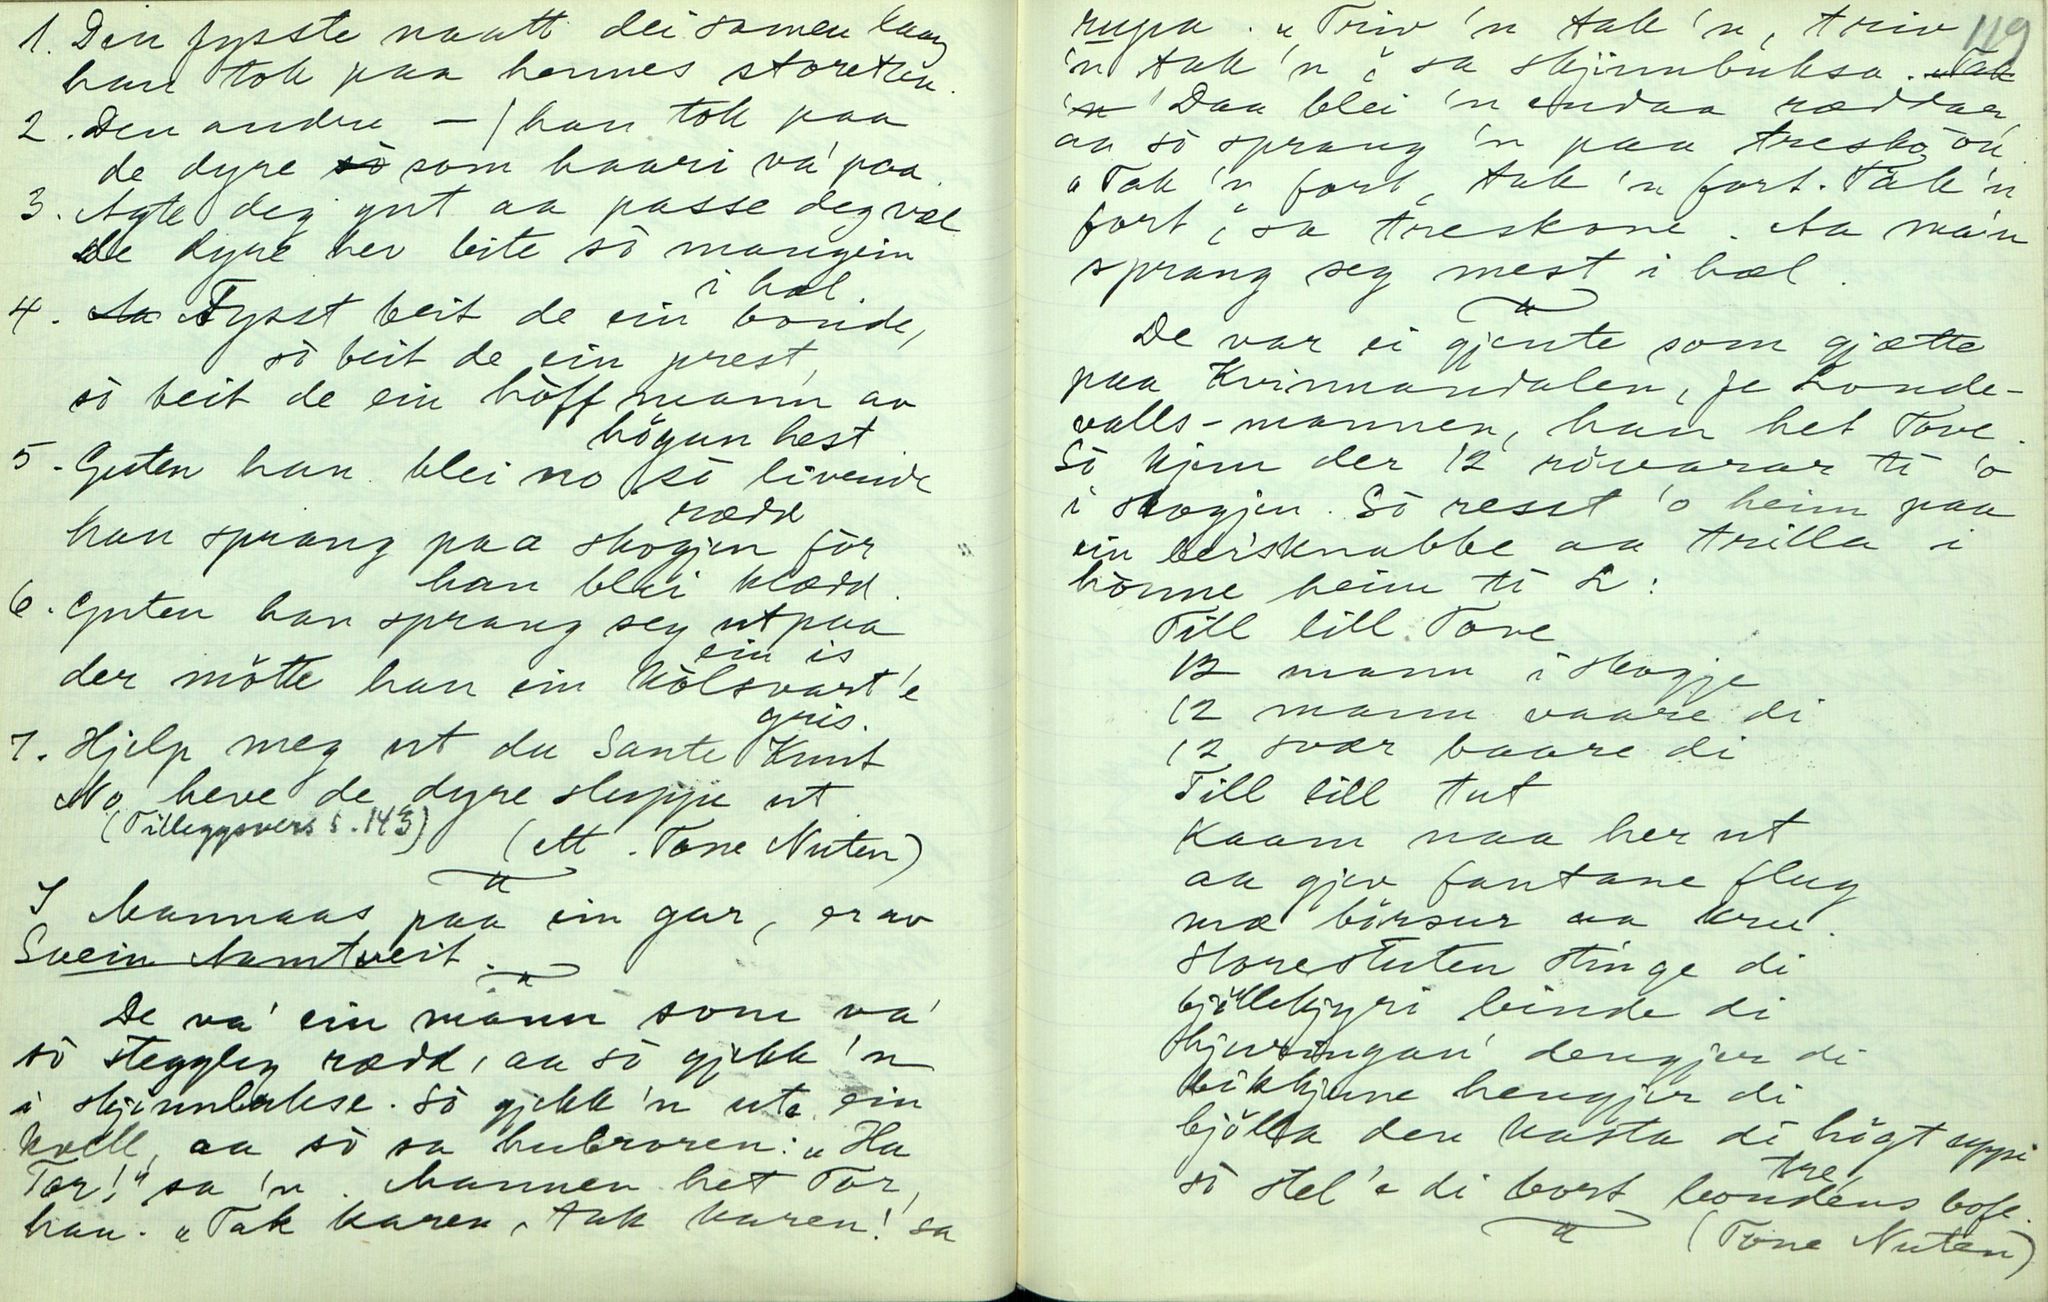 1. Den fysste naatt dei samen laag
han tok paa hennes storetaa.
2. Den andre — / han tok paa
de dyre som haari va' paa.
3. Agte deg gut aa passe deg væl
de dyre hev bite sò mangein
i hæl.
4. Fysst beit de ein bonde,
sò beit de ein prest,
sò beit de ein hòffmann av
högan hest.
5. Guten han blei no sò livende
rædd
han sprang paa skogjen fòr
han blei klædd.
6. Guten han sprang seg ut paa
ein is
der mötte han ein kòlsvart'e
gris.
7. Hjelp meg ut du Sante Knut
No heve de dyre sleppe ut
(Tilleggsvers s. 143)
(Tone Nuten)
I Mannaas paa ein gar, er av
Svein Namtveit.
De va' ein mann som va'
sò steggleg rædd, aa sò gjekk 'n
i skjinnbukse. Sò gjekk 'n ute ein
kvell, aa sò sa hubroren: „Hu
Tor!" sa 'n. Mannen het Tor,
han. „Tak karen, tak karen! sa
119
rupa. „Triv 'n tak 'n, triv
'n tak 'n", sa skjinnbuksa. „Tak
'n" Daa blei 'n endaa ræddaar,
aa sò sprang 'n paa treskoòn.
„Tak 'n fort, tak 'n fort. Tak 'n
fort", sa treskone. Aa ma'n
sprang seg mest i hæl.
De var ei gjente som gjætte
paa Kvinnandalen, fe Londe-
valls-mannen, han het Tove.
Sò kjem der 12 röuvarar ti 'o
i skogjen. Sò resst 'o heim paa
ein beisknabbe aa trilla i
hònne heim ti L:
Till lill Tove
12 mann i skogje
12 mann vaare di
12 svær baare di
Till lill tut
Kaam naa her ut
aa gjev fantane flug
mæ börsur aa kru.
Storestuten stinge di
bjöllekjyri binde di
Skjuringan' dengjer di
bikkjune hengjer di
bjölla den kasta di högt uppi
tre
sò stel'e di bort bondens bofe.
(Tone Nuten)